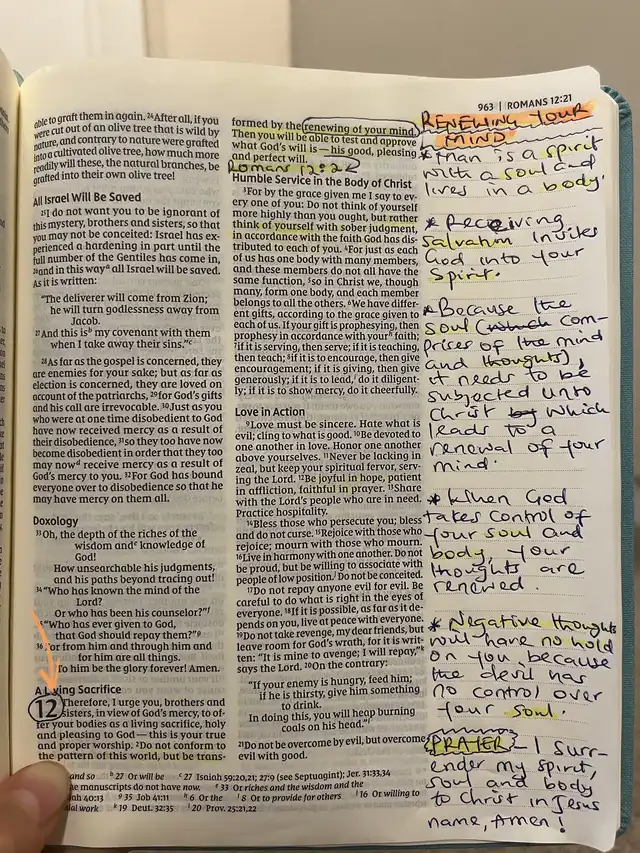 963 | ROMANS 12:21
able to graft them in again. 24After all, if you
were cut out of an olive tree that is wild by
nature, and contrary to nature were grafted
into a cultivated olive tree, how much more
readily will these, the natural branches, be
grafted into their own olive tree!
All Israel Will Be Saved
25I do not want you to be ignorant of
this mystery, brothers and sisters, so
that you may not be conceited: Israel has ex-
perienced a hardening in part until the
full number of the Gentiles has come in,
26and in this way a all Israel will be saved.
As it is written:
"The deliverer will come from Zion;
he will turn godlessness away from
Jacob.
27And this is b my covenant with them
when I take away their sins."c
28As far as the gospel is concerned, they
are enemies for your sake; but as far as
election is concerned, they are loved on
account of the patriarchs, 29for God's gifts
and his call are irrevocable. 30Just as you
who were at one time disobedient to God
have now received mercy as a result of
their disobedience, 31so they too have now
become disobedient in order that they too
may now d receive mercy as a result of
God's mercy to you. 32For God has bound
everyone over to disobedience so that he
may have mercy on them all.
Doxology
33Oh, the depth of the riches of the
wisdom and e knowledge of
God!
How unsearchable his judgments,
and his paths beyond tracing out!
34"Who has known the mind of the
Lord?
Or who has been his counselor?"f
"Who has ever given to God,
that God should repay them?"g
36For from him and through him and
for him are all things.
To him be the glory forever! Amen.
A Living Sacrifice
12 Therefore, I urge you, brothers and
sisters, in view of God's mercy, to of-
fer your bodies as a living sacrifice, holy
and pleasing to God—this is your true
and proper worship. 2Do not conform to
the pattern of this world, but be trans-
formed by the renewing of your mind.
Then you will be able to test and approve
what God's will is—his good, pleasing
and perfect will.
Romans 12:2
Humble Service in the Body of Christ
3For by the grace given me I say to ev-
ery one of you: Do not think of yourself
more highly than you ought, but rather
think of yourself with sober judgment,
in accordance with the faith God has dis-
tributed to each of you. 4For just as each
of us has one body with many members,
and these members do not all have the
same function, 5so in Christ we, though
many, form one body, and each member
belongs to all the others. 6We have differ-
ent gifts, according to the grace given to
each of us. If your gift is prophesying, then
prophesy in accordance with your h faith;
7if it is serving, then serve; if it is teaching,
then teach; 8if it is to encourage, then give
encouragement; if it is giving, then give
generously; if it is to lead, i do it diligent-
ly; if it is to show mercy, do it cheerfully.
Love in Action
9Love must be sincere. Hate what is
evil; cling to what is good. 10Be devoted to
one another in love. Honor one another
above yourselves. 11Never be lacking in
zeal, but keep your spiritual fervor, serv-
ing the Lord. 12Be joyful in hope, patient
in affliction, faithful in prayer. 13Share
with the Lord's people who are in need.
Practice hospitality.
14Bless those who persecute you; bless
and do not curse. 15Rejoice with those who
rejoice; mourn with those who mourn.
16Live in harmony with one another. Do not
be proud, but be willing to associate with
people of low position. j Do not be conceited.
17Do not repay anyone evil for evil. Be
careful to do what is right in the eyes of
everyone. 18If it is possible, as far as it de-
pends on you, live at peace with everyone.
19Do not take revenge, my dear friends, but
leave room for God's wrath, for it is writ-
ten: "It is mine to avenge; I will repay," k
says the Lord. 20On the contrary:
"If your enemy is hungry, feed him;
if he is thirsty, give him something
to drink.
In doing this, you will heap burning
coals on his head." l
21Do not be overcome by evil, but overcome
evil with good.
RENEWING YOUR
MIND
* Man is a spirit
with a soul and
lives in a body.
* Receiving
salvation invites
God into your
Spirit.
* Because the
soul (which com-
prises of the mind
and thoughts),
it needs to be
subjected unto
Christ by which
leads to a
renewal of your
mind.
* When God
takes control of
your soul and
body, your
thoughts are
renewed.
* Negative thoughts
will have no hold
on you, because
the devil has
no control over
your soul.
PRAYER - I surr-
ender my spirit,
soul and body
to Christ in Jesus
name, Amen!
and so b 27 Or will be c 27 Isaiah 59:20,21; 27:9 (see Septuagint); Jer. 31:33,34
manuscripts do not have now. e 33 Or riches and the wisdom and the
40:13 g 35 Job 41:11 h 6 Or the i 8 Or to provide for others j 16 Or willing to
work k 19 Deut. 32:35 l 20 Prov. 25:21,22